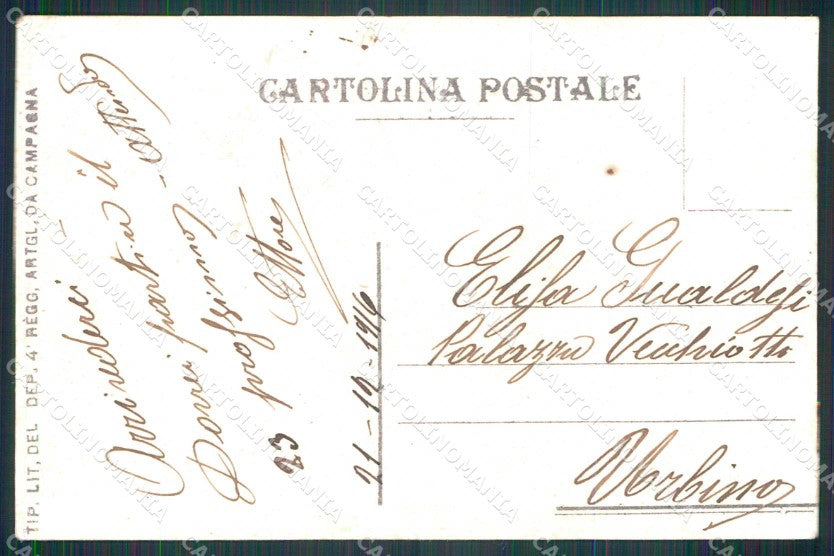 CARTOLINA POSTALE
TIP. LIT. DEL DEP. 4 REGG. ARTGL. DA CAMPAGNA
Arrivederci
Dovrei partire il
23 prossimo
Ettore
21-10-1916
Elisa Gualdesi
Palazzo Vecchiotti
Urbino
CARTOLINOMANIA